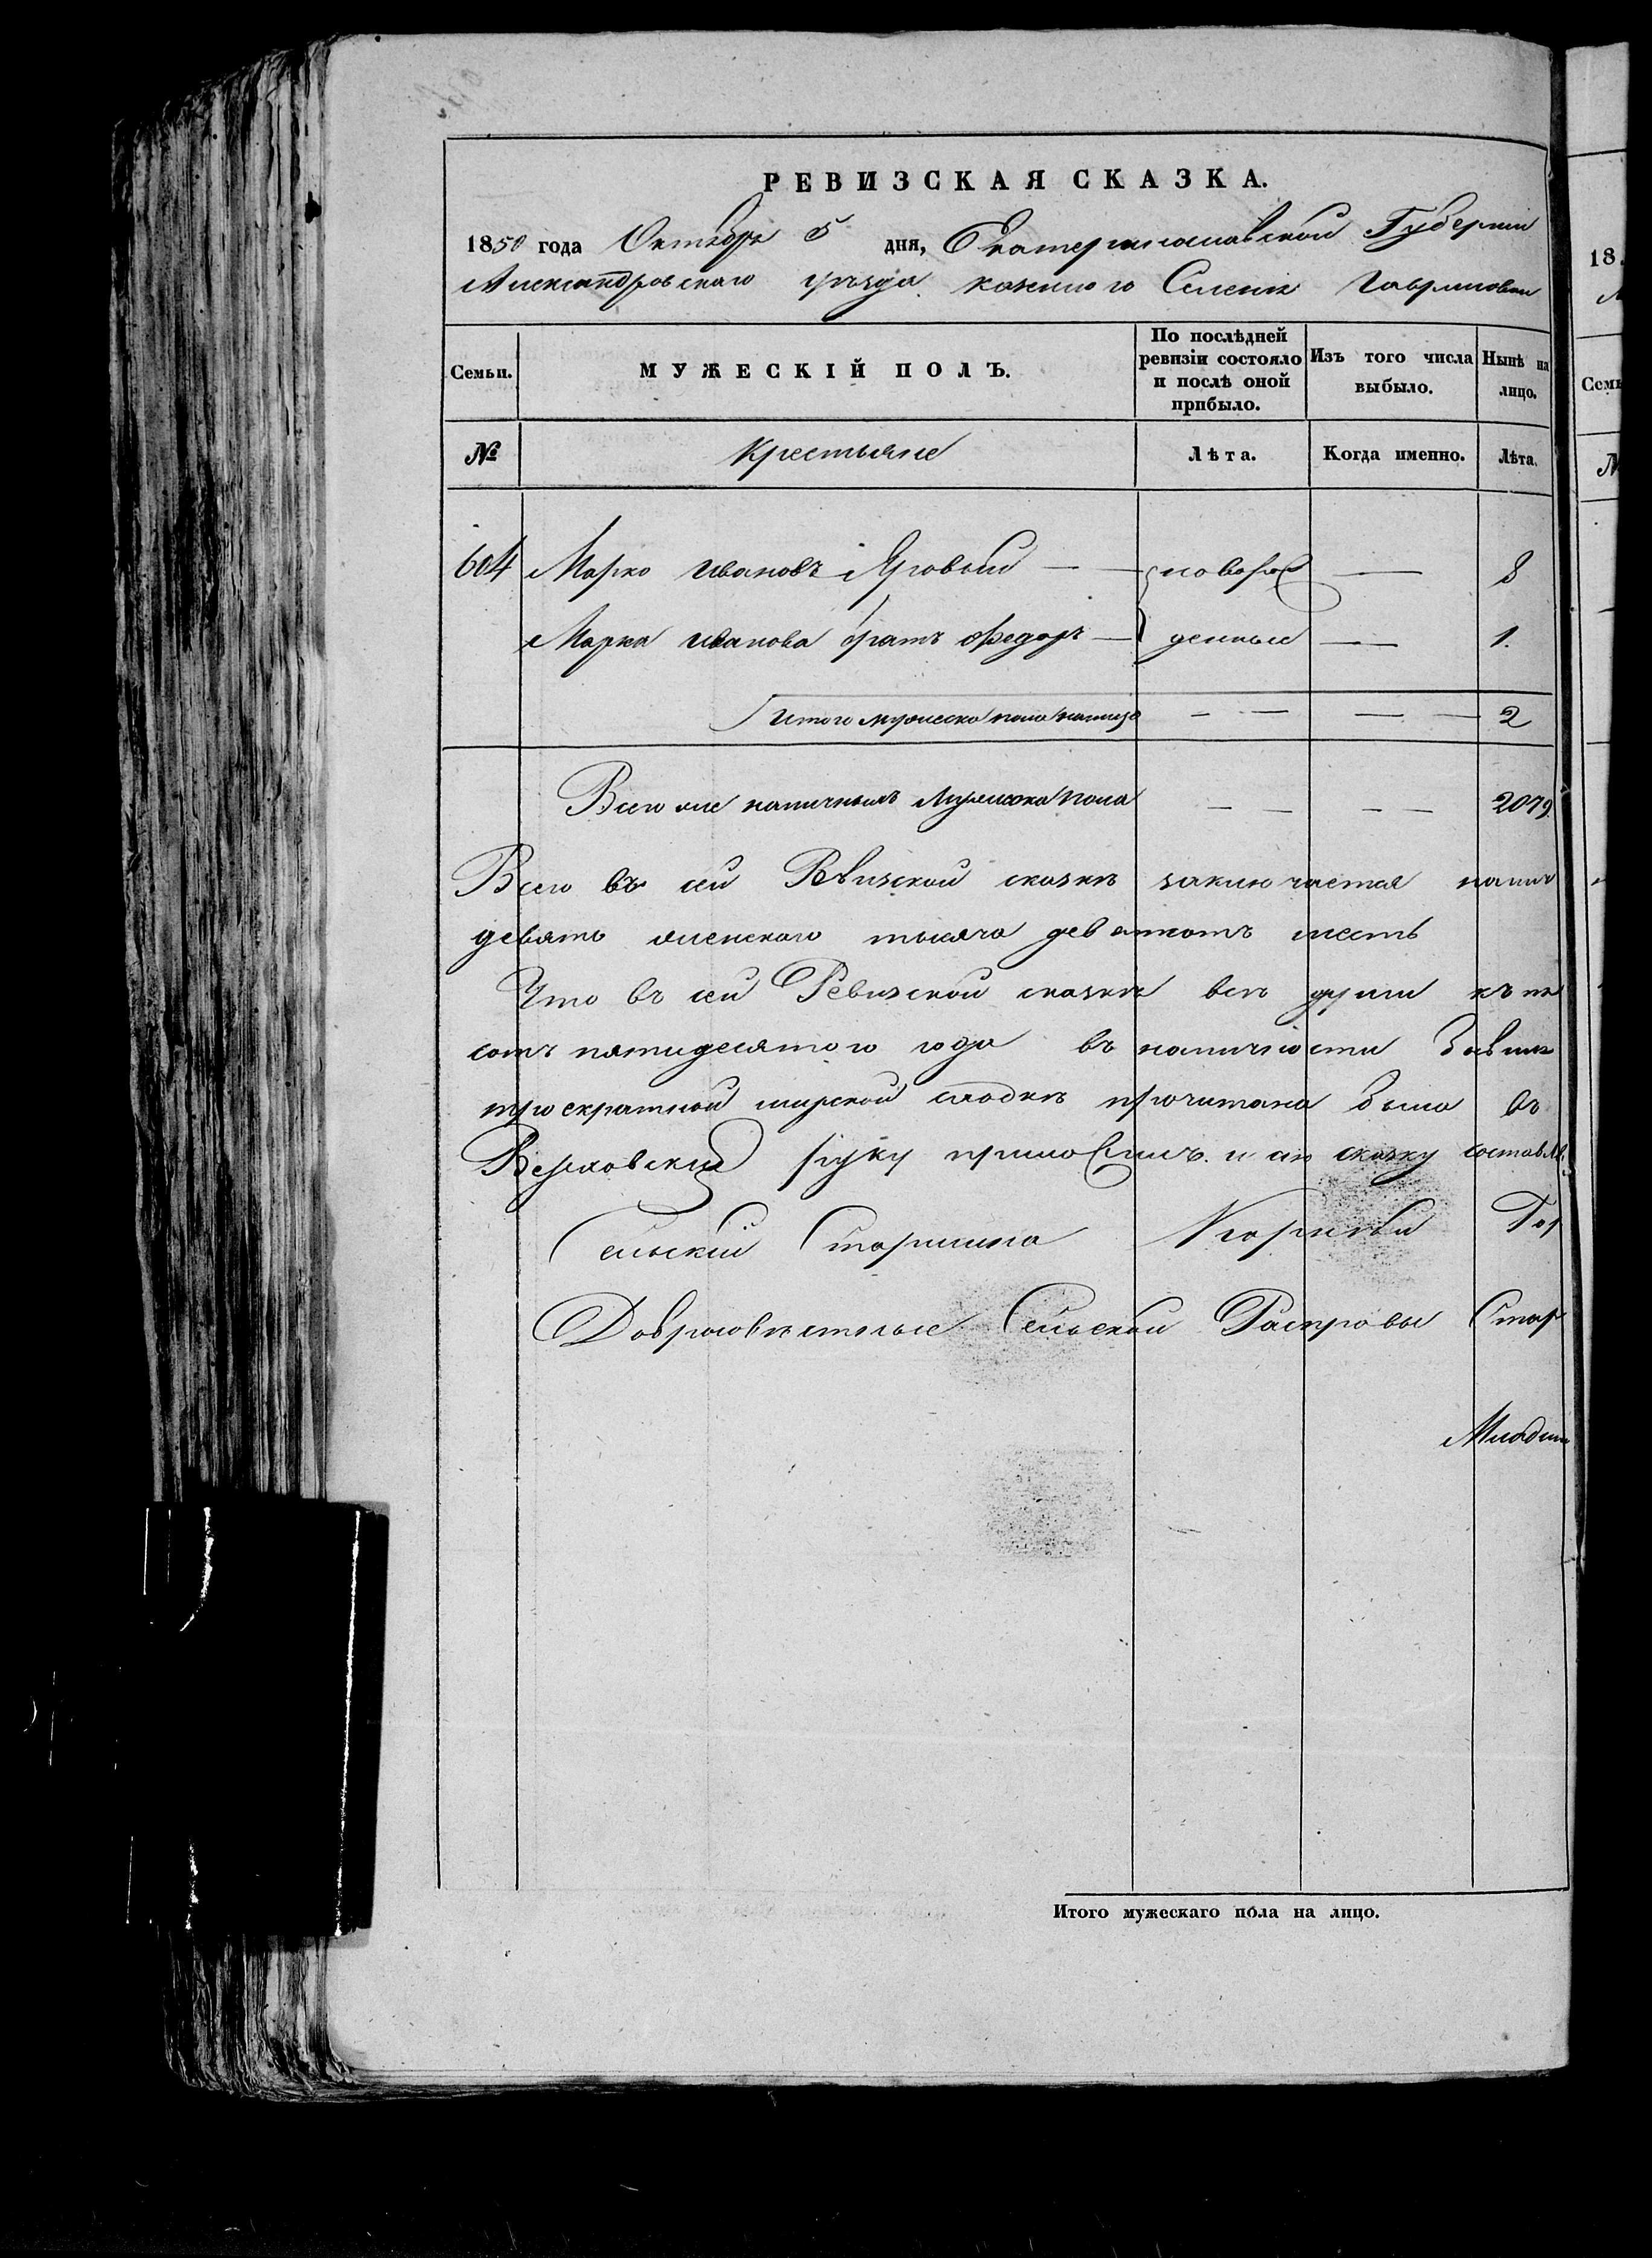 РЕВИЗСКАЯ СКАЗКА.
1850 года Октября 5 дня, Екатеринославской Губерніи
Александровскаго уѣзда казенного Селенія Гавриловки
Семьи. МУЖЕСКІЙ ПОЛЪ. По послѣдней ревизіи состояло и послѣ оной прибыло. Изъ того числа выбыло. Нынѣ на лицо.
№ Крестьяне Лѣта. Когда именно. Лѣта.
604 Марко Ивановъ Яровый — — новорож — 8
Марка Иванова братъ Федоръ — денные — 1.
Итого мужеска пола налицо — — — — 2
Всего же наличныхъ мужеска пола — — — — 2079
Всего въ сей Ревизской сказкѣ заключается налич
девять женскаго тысяча девятсотъ шесть
Что въ сей Ревизской сказкѣ всѣ души къ
сотъ пятидесятого года въ наличности
троекратной мирской сходкѣ прочитана была въ
руку приложилъ. и сію сказку составл
Сельскій Старшина Корнѣй
Добросовѣстные Сельской Расправы Стар
Младш
Итого мужескаго пола на лицо.
18
Семь
№